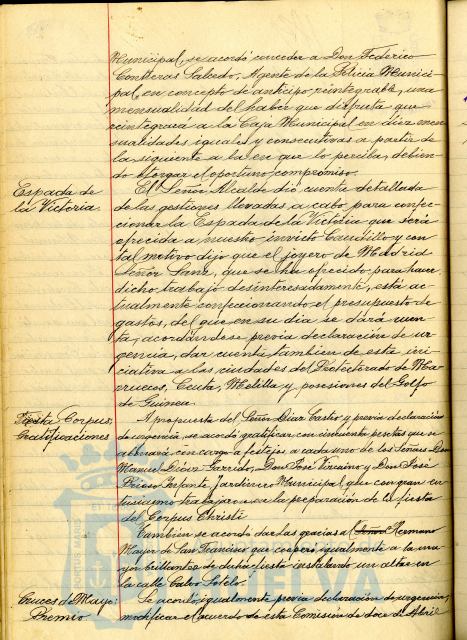 Municipal, se acordó conceder a Don Federico
Contreras Salcedo, Agente de la Policia Munici-
pal, en concepto de anticipo reintegrable, una
mensualidad del haber que disfruta que
reintegrará a la Caja Municipal en diez men-
sualidades iguales y consecutivas a partir de
la siguiente a la en que lo perciba, debien-
do otorgar el oportuno compromiso.
Espada de
la Victoria.
El Señor Alcalde dió cuenta detallada
de las gestiones llevadas a cabo para confec-
cionar la Espada de la Victoria que será
ofrecida a nuestro invicto Caudillo y con
tal motivo dijo que el joyero de Madrid
Señor Sanz, que se ha ofrecido para hacer
dicho trabajo desinteresadamente, está ac-
tualmente confeccionando el presupuesto de
gastos, del que en su dia se dará cuen-
ta, acordándose, previa declaración de ur-
gencia, dar cuenta tambien de esta ini-
ciativa a las ciudades del Protectorado de Ma-
rruecos, Ceuta, Melilla y posesiones del Golfo
de Guinea.
Fiesta Corpus,
Gratificaciones
A propuesta del Señor Diaz Castro y previa declaración
de urgencia, se acordó gratificar con cincuenta pesetas que se
abonará con cargo a festejos, a cada uno de los Señores Don
Manuel Garrido, Don José Vizcaino y Don José
Infante, Jardinero Municipal que con gran en-
tusiasmo trabajaron en la preparación de la fiesta
del Corpus Christi.
Tambien se acordó dar las gracias al Señor Hermano
Mayor de San Francisco que cooperó igualmente a la ma-
yor brillantez de dicha fiesta instalando un altar en
la calle Calvo Sotelo.
Cruces de Mayo:
Premio
Se acordó, igualmente previa declaración de urgencia,
modificar el acuerdo de esta Comisión de doce de Abril
HUELVA
PORTUS MARIS